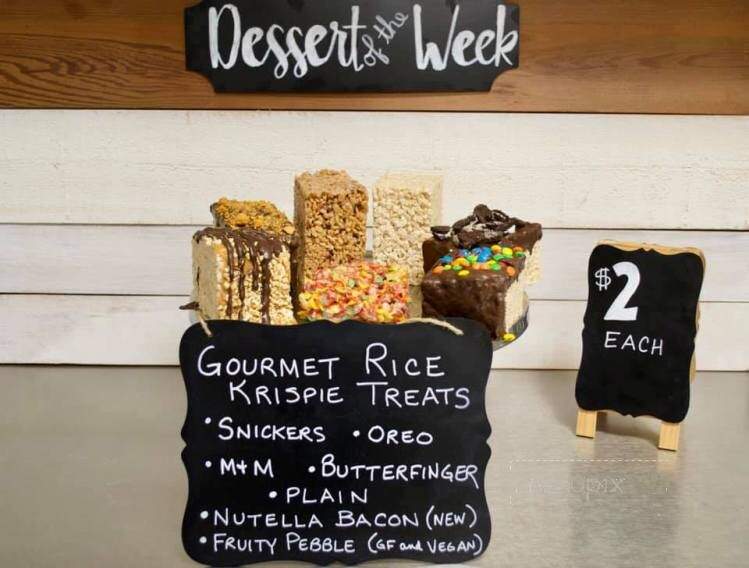 Dessert of the Week
$2
EACH
GOURMET RICE
KRISPIE TREATS
• SNICKERS • OREO
• M+M • BUTTERFINGER
• PLAIN
• NUTELLA BACON (NEW)
• FRUITY PEBBLE (GF and VEGAN)